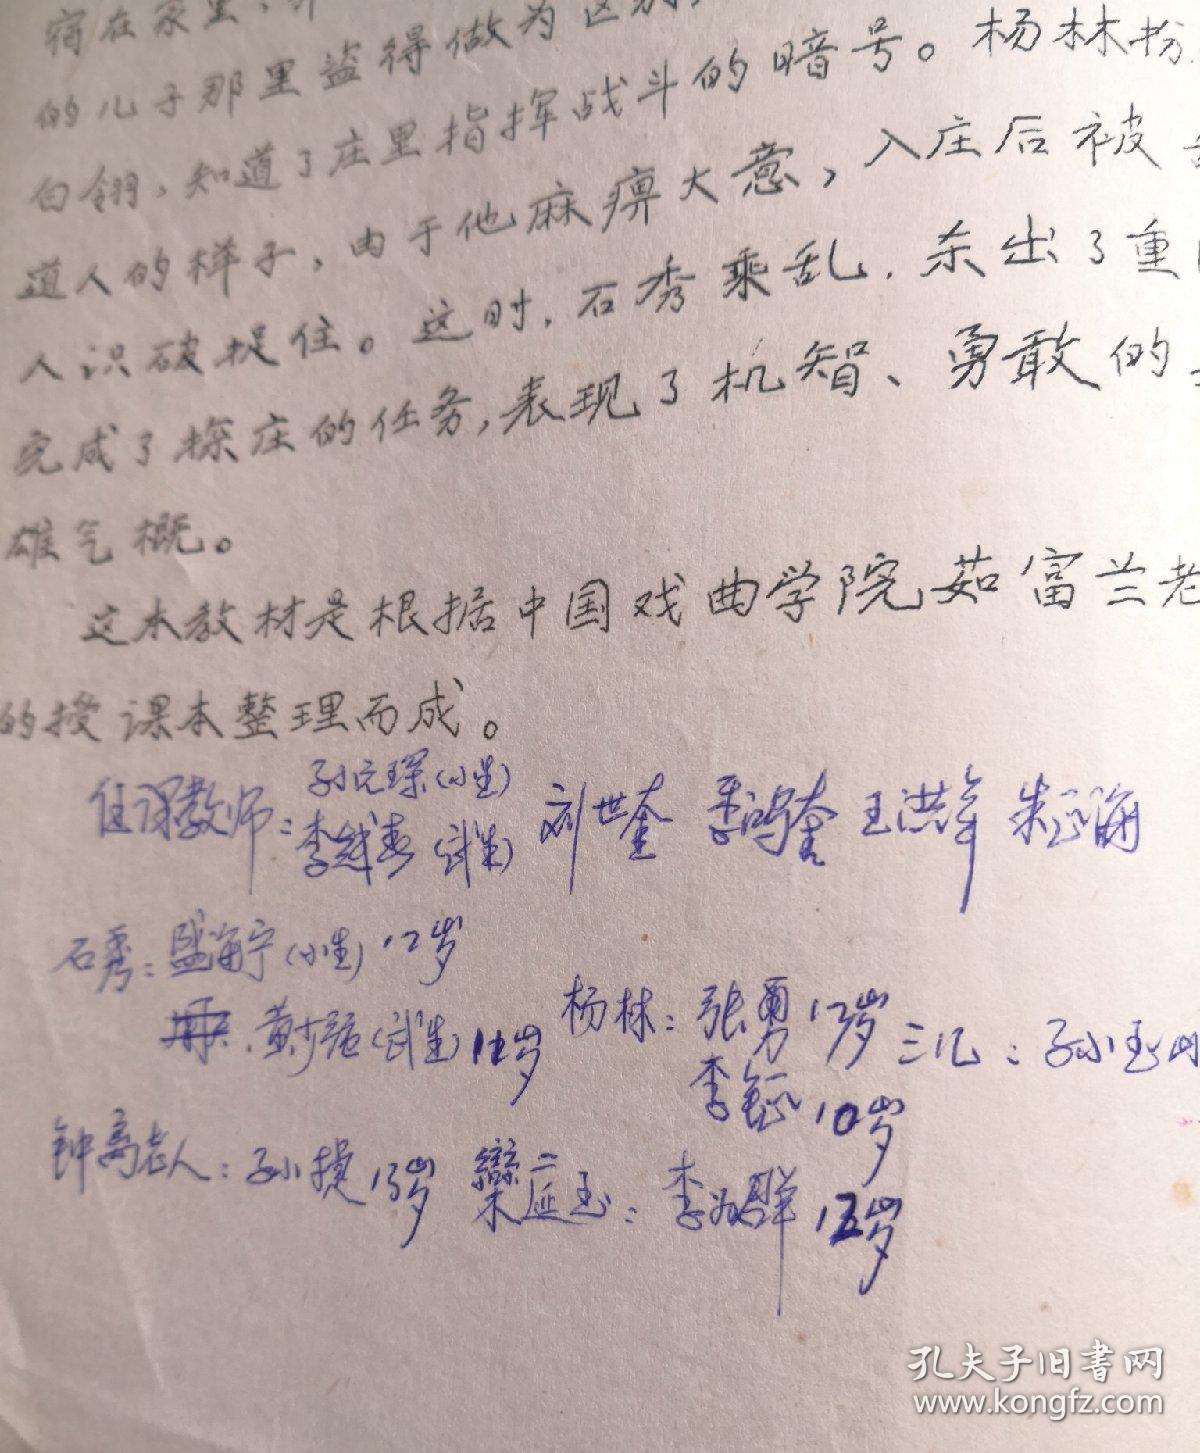 宿在家里、
的儿子那里盗得做为区别
白翎，知道了庄里指挥战斗的暗号。杨林扮
道人的样子，由于他麻痹大意，入庄后被
人识破捉住。这时，石秀乘乱，杀出了重
完成了探庄的任务，表现了机智、勇敢的
雄气概。
这本教材是根据中国戏曲学院茹富兰老
的授课本整理而成。
任课教师：孙元琛（小生） 刘世奎 季鸿奎 王洪年 朱海
李（武生）
石秀：盛海宁（小生）12岁
黄少强（武生）12岁
杨林：张勇13岁
李钲10岁
三儿：孙小玉
钟离老人：孙捷13岁 栾应玉：李群12岁
孔夫子旧书网
www.kongfz.com